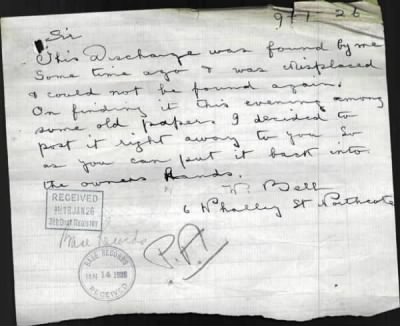 9-1-26
Sir
This Discharge was found by me
Some time ago & was misplaced
& could not be found again.
On finding it this evening among
some old papers I decided to
post it right away to you so
as you can put it back into
the owners hands.
W. Bell
6 Whalley St Northcote
RECEIVED
13 JAN 26
Base Records
BASE RECORDS
JAN 14 1926
RECEIVED
P.A